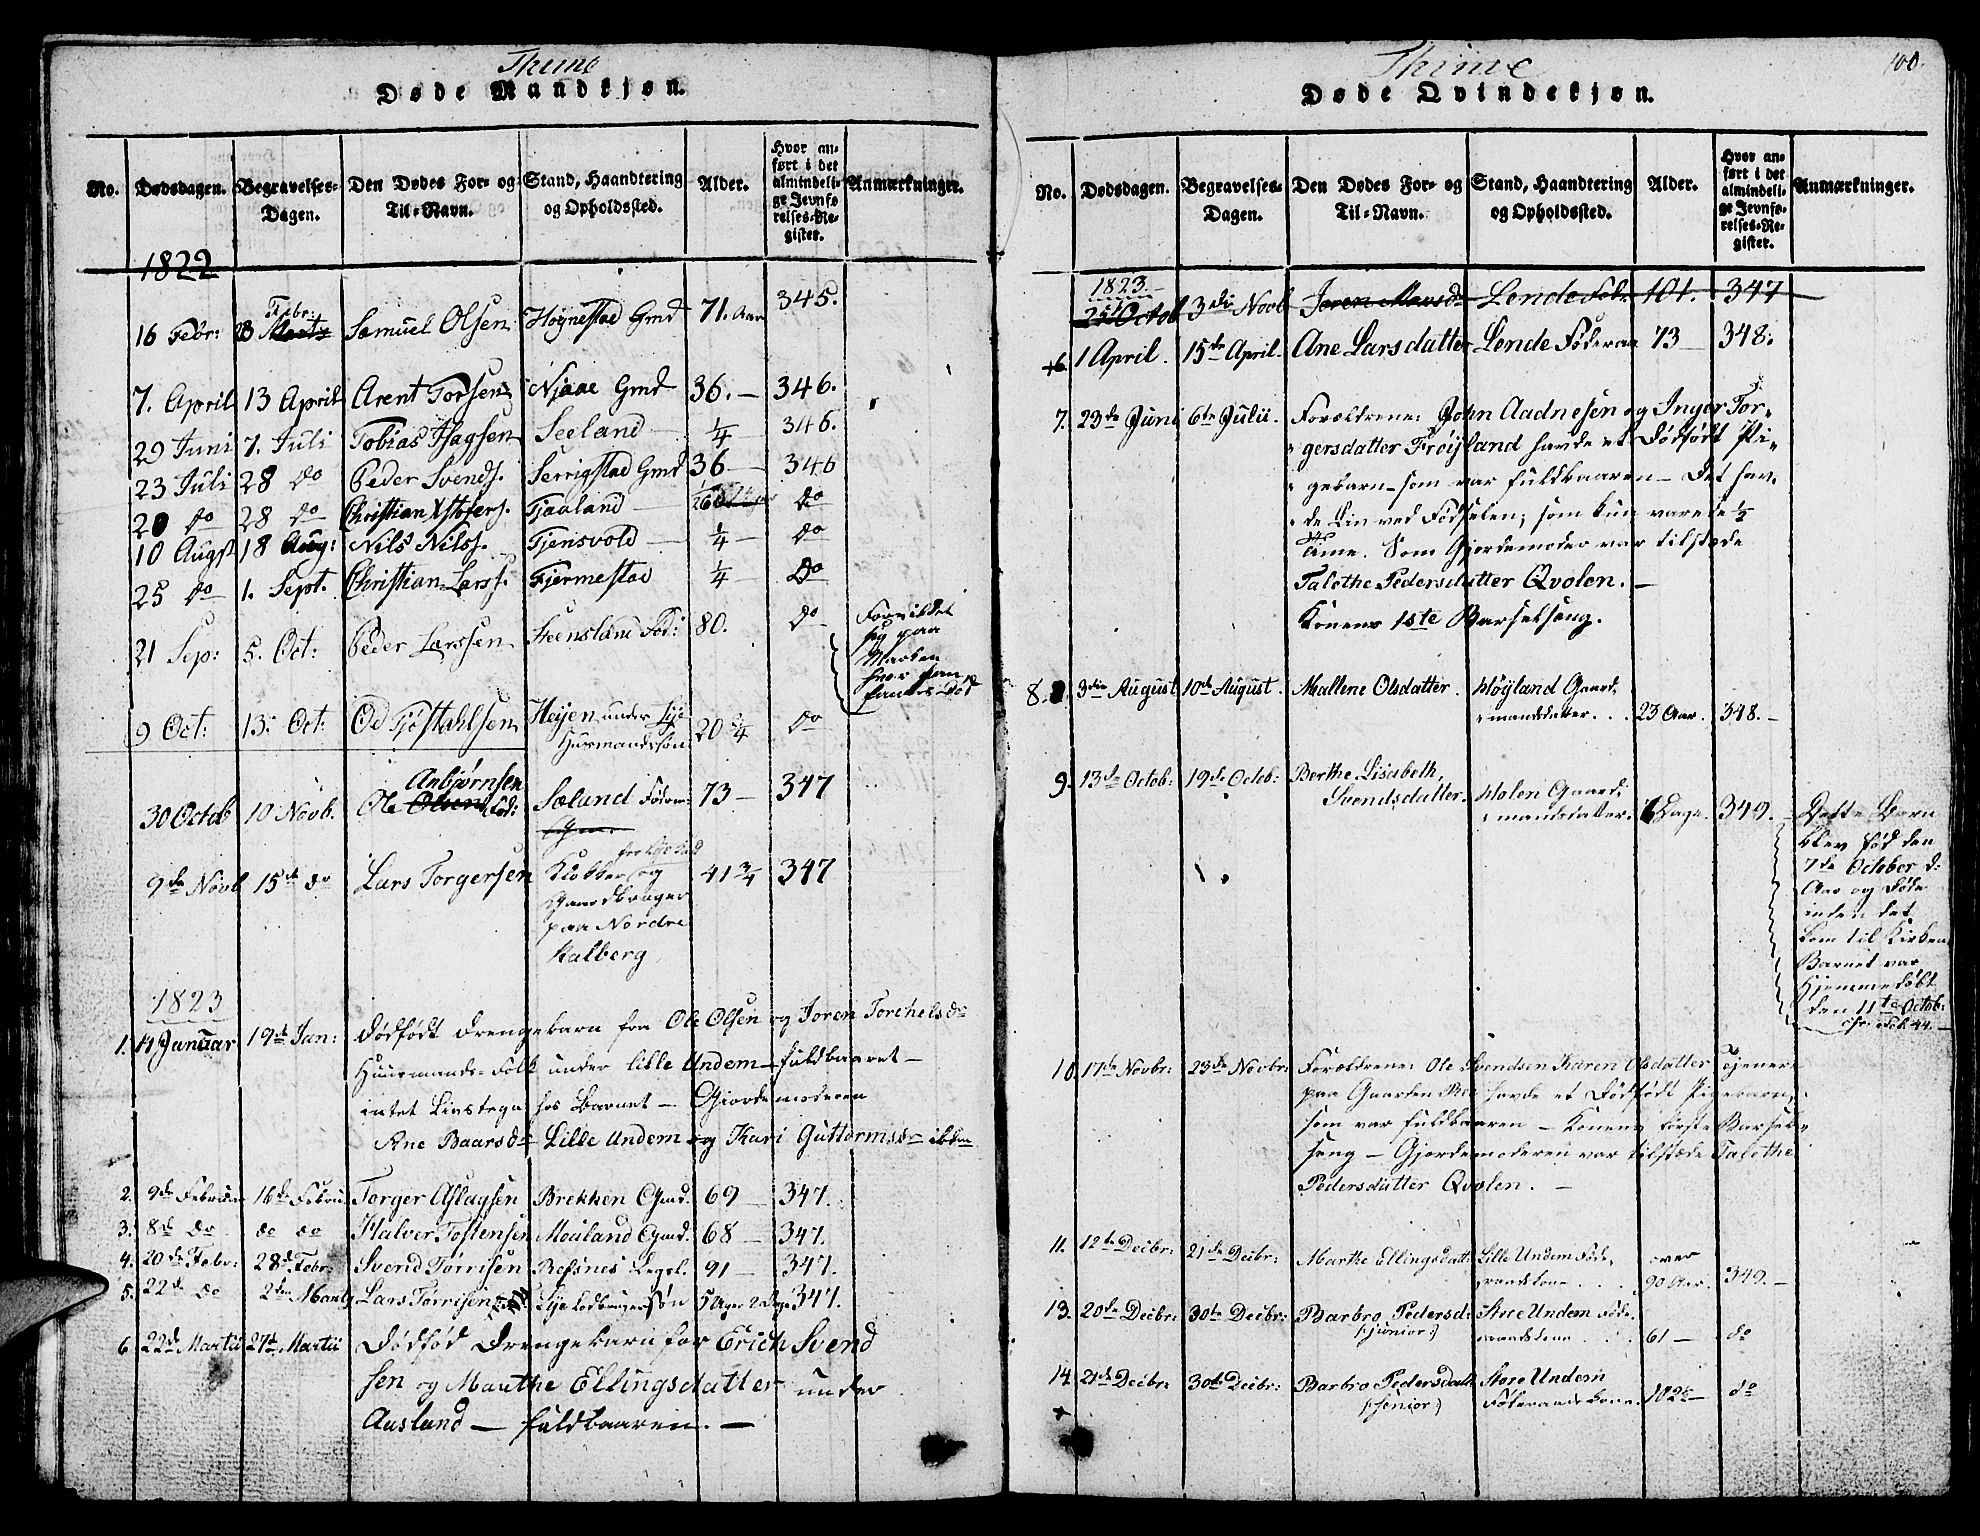 Thime
Døde Mandkjøn.
No. Dødsdagen. Begravelses-Dagen. Den Dødes For- og Til-Navn. Stand, Haandtering og Opholdssted. Alder. Hvor anført i det almindelige Jevnførelses-Register. Anmærkninger.
1822
16 Febr: 23 Febr: Samuel Olsen Høgnestad Gmd 71. Aar 345.
7. April 13 April Arent Torsen Njaae Gmd 36. — 346.
29 Juni 7. Juli Tobias Isagsen Seeland — 1/4 346.
23 Juli 28 do Peder Svends. Serrigstad Gmd 36 — 346
20 do 28 do Christian Xstofers. Tjaaland — do
10 Augst 18 Aug: Nils Nilss. Tjensvold — 1/4 — do
25 do 1. Sept. Christian Larss. Fjermestad 1/4 — do
21 Sep: 5. Oct: Peder Larssen Steensland Fød: 80. do Forvildet
sig paa
Marken
hvor han
fandtes død
9 Oct: 13. Oct: Od Tjøstahlsen Heyen under Lye 20 3/4 do
Huusmandssøn
Anbjørnsen
30 Octob 10 Novb. Ole Olsen Fød: Sæland Føderm: 73 — 347
Gm.
for Lye Sed
9de Novb 15de do Lars Torgersen Klokker og 41 3/4 347
Gaardbruger
paa Nordre
Kalberg
1823
1. 11 Januar 19de Jan: Dødfødt Drengebarn fra Ole Olsen og Joren Torchelsdr
Huusmands-Folk under lille Undem — fuldbaaret —
intet Livstegn hos Barnet — Giordemoderen
Ane Baarsdr Lille Undem og Kari Guttormsdr ibdm
2. 9de Februar 16de Februar Torger Aslagsen Brekken Gmd. 69 — 347.
3. 8de do do do Halver Tostensen Mouland Gmd. 68 — 347.
4. 20de Febr: 28de Febr: Svend Torrisen Refsnes Legsl. 91 — 347.
5. 22de do 2den Marty Lars Torrisen Lye Lodbrugersøn 5 Uger 2 Dage 347.
6 22de Martii 27de Martii Dødfød Drengebarn for Erich Svend
sen og Marthe Ellingsdatter under
Ausland — fuldbaaren. —
100.
Thime
Døde Qvindekjøn.
No. Dødsdagen. Begravelses-Dagen. Den Dødes For- og Til-Navn. Stand, Haandtering og Opholdssted. Alder. Hvor anført i det almindelige Jevnførelses-Register. Anmærkninger.
1823.
25 Octob 3die Novb Joren Mousdr Lende Fød. 101. 347
6 1 April. 15de April. Ane Larsdatter Lende Føderaa 73 — 348.
7. 23de Juni 6te Julii. Forældrene: John Aadnesen og Inger Tor-
gersdatter Frøyland havde et Dødfødt Pi-
gebarn — som var fuldbaaren — Det hav-
de Liv ved Fødselen; som kun varede 1/2
Time. Som Gjordemoder var tilstæde
Talethe Pedersdatter Qvolen. —
Konens 1ste Barselseng.
8. 3die August 10de August. Mallene Olsdatter. Høyland Gaard-
mandsdatter. . . 23 Aar. 348. —
9. 13de Octob: 19de Octob: Berthe Lisabeth, Holen Gaard-
Svendsdatter. mandsdatter. 6 Dage. 349. —
Dette Barn
blev fød den
7de October d:
Aar og Døde
inden det
kom til Kirken
Barnet var
hjemmedøbt
den 11te Octob:
cfr: Fol: 44. —
10. 17de Novbr: 23de Novbr: Forældrene: Ole Svendsen Karen Olsdatter Tjener
paa Gaarden Ree havde et Dødfødt Pigebarn,
som var fuldbaaren — Konens første Barsel-
seng — Gjordemoderen var tilstæde Talethe
Pedersdatter Qvolen. —
11. 12te Decbr: 21de Decbr: Marthe Ellingsdatt. Lille Undem Føde- over
raadskone . . . 90 Aar. 349. —
13. 20de Decbr: 30te Decbr: Barbro Pedersd. Store Undem Føde-
(:junior:) raadskone . . . 61 — do
14 21de Decbr: 30te Decbr: Barbro Pedersdatt. Store Undem
(:senior:) Føderaadskone. 102 — do